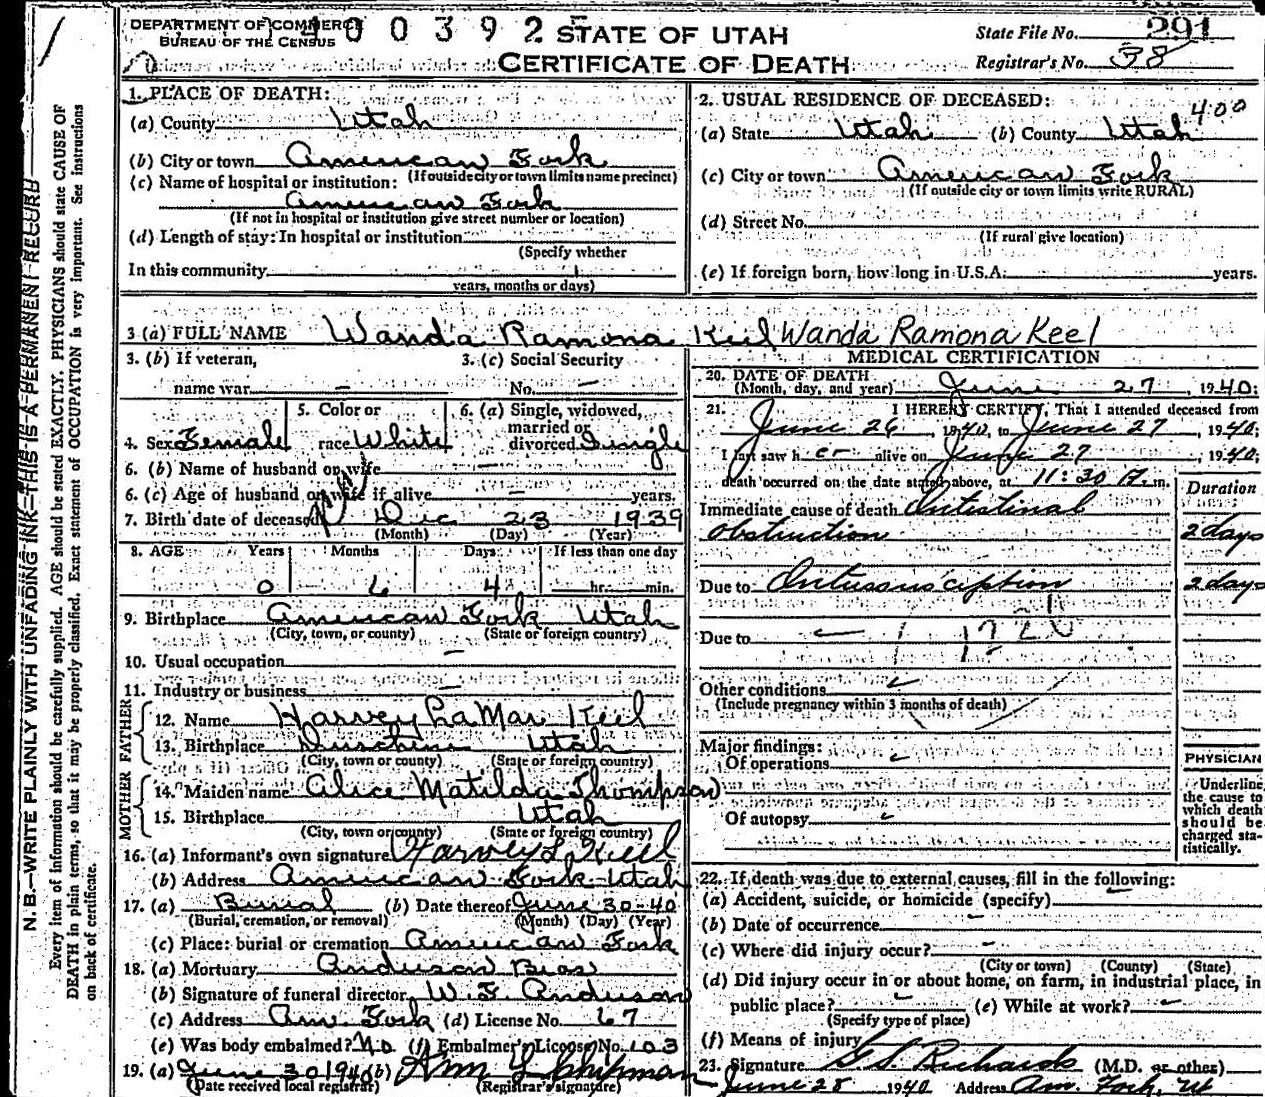 DEPARTMENT OF COMMERCE
BUREAU OF THE CENSUS
400392
STATE OF UTAH
CERTIFICATE OF DEATH
State File No. 291
Registrar's No. 38
1. PLACE OF DEATH:
(a) County Utah
(b) City or town American Fork
(If outside city or town limits name precinct)
(c) Name of hospital or institution:
American Fork
(If not in hospital or institution give street number or location)
(d) Length of stay: In hospital or institution
(Specify whether
In this community
years, months or days)
2. USUAL RESIDENCE OF DECEASED:
400
(a) State Utah (b) County Utah
(c) City or town American Fork
(If outside city or town limits write RURAL)
(d) Street No.
(If rural give location)
(e) If foreign born, how long in U.S.A. years.
3 (a) FULL NAME Wanda Ramona Keel Wanda Ramona Keel
3. (b) If veteran, 3. (c) Social Security
name war — No. —
4. Sex Female
5. Color or race White
6. (a) Single, widowed, married or divorced Single
6. (b) Name of husband or wife —
6. (c) Age of husband or wife if alive — years.
7. Birth date of deceased Dec 23 1939
(Month) (Day) (Year)
8. AGE Years Months Days If less than one day
0 6 4 hr. min.
9. Birthplace American Fork Utah
(City, town, or county) (State or foreign country)
10. Usual occupation —
11. Industry or business —
FATHER
12. Name Harvey LaMar Keel
13. Birthplace Duschine Utah
(City, town or county) (State or foreign country)
MOTHER
14. Maiden name Alice Matilda Thompson
15. Birthplace Utah
(City, town or county) (State or foreign country)
16. (a) Informant's own signature Harvey L. Keel
(b) Address American Fork Utah
17. (a) Burial (b) Date thereof June 30-40
(Burial, cremation, or removal) (Month) (Day) (Year)
(c) Place: burial or cremation American Fork
18. (a) Mortuary Anderson Bros
(b) Signature of funeral director W. F. Anderson
(c) Address Am. Fork (d) License No. 67
(e) Was body embalmed? No. (f) Embalmer's License No. 103
19. (a) June 30 1940 (b) Ann Y. Chipman
(Date received local registrar) (Registrar's signature)
MEDICAL CERTIFICATION
20. DATE OF DEATH
(Month, day, and year) June 27, 1940;
21. I HEREBY CERTIFY, That I attended deceased from
June 26, 1940, to June 27, 1940;
I last saw her alive on June 27, 1940;
death occurred on the date stated above, at 11:30 P. m.
Duration
Immediate cause of death Intestinal
obstruction 2 days
Due to Intussusception 2 days
Due to
Other conditions
(Include pregnancy within 3 months of death)
Major findings:
Of operations
Of autopsy
PHYSICIAN
Underline
the cause to
which death
should be
charged sta-
tistically.
22. If death was due to external causes, fill in the following:
(a) Accident, suicide, or homicide (specify)
(b) Date of occurrence
(c) Where did injury occur?
(City or town) (County) (State)
(d) Did injury occur in or about home, on farm, in industrial place, in
public place? (e) While at work?
(Specify type of place)
(f) Means of injury
23. Signature G. S. Richards (M.D. or other)
June 28 1940 Address Am. Fork, Ut
N. B.—WRITE PLAINLY WITH UNFADING INK—THIS IS A PERMANENT RECORD
Every item of information should be carefully supplied. AGE should be stated EXACTLY. PHYSICIANS should state CAUSE OF
DEATH in plain terms, so that it may be properly classified. Exact statement of OCCUPATION is very important. See instructions
on back of certificate.